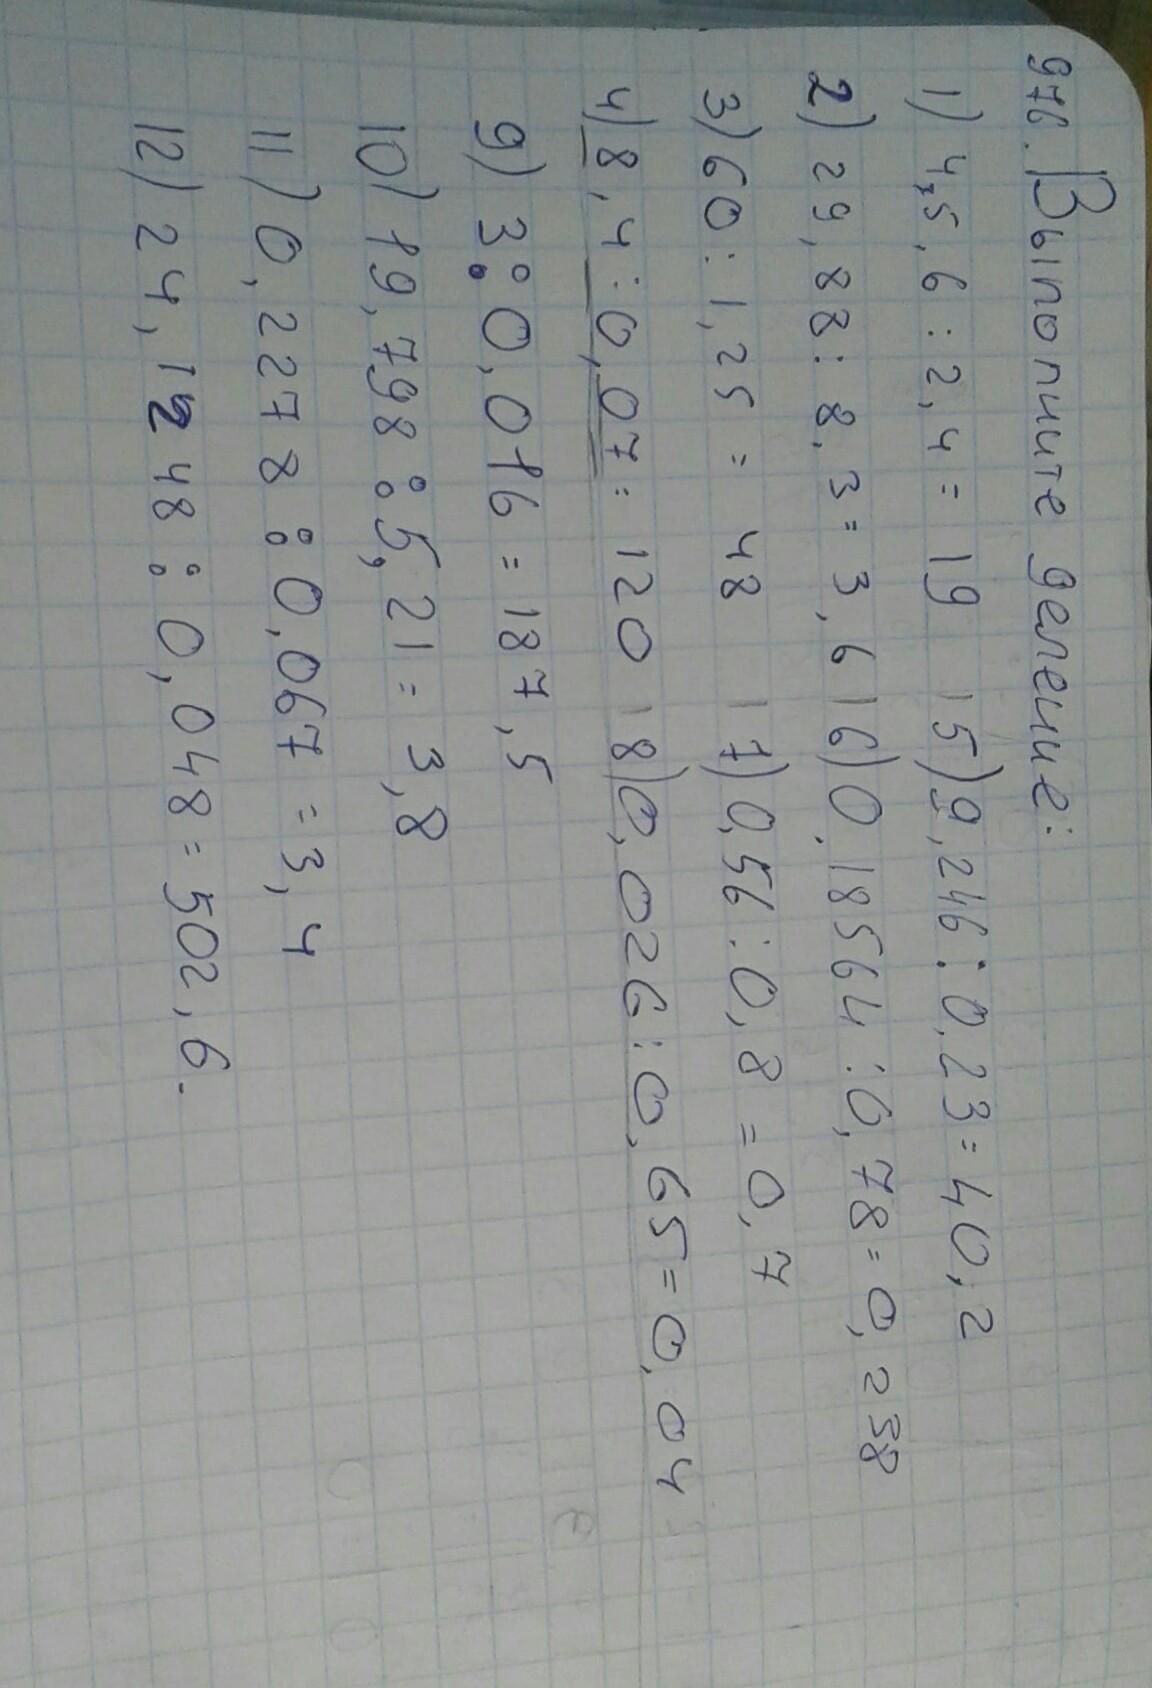 976. Выполните деление:
1) 45,6 : 2,4 = 19 15) 9,246 : 0,23 = 40,2
2) 29,88 : 8,3 = 3,6 16) 0,18564 : 0,78 = 0,238
3) 60 : 1,25 = 48 17) 0,56 : 0,8 = 0,7
4) 8,4 : 0,07 = 120 18) 0,026 : 0,65 = 0,04
9) 3 : 0,016 = 187,5
10) 19,798 : 5,21 = 3,8
11) 0,2278 : 0,067 = 3,4
12) 24,1248 : 0,048 = 502,6.